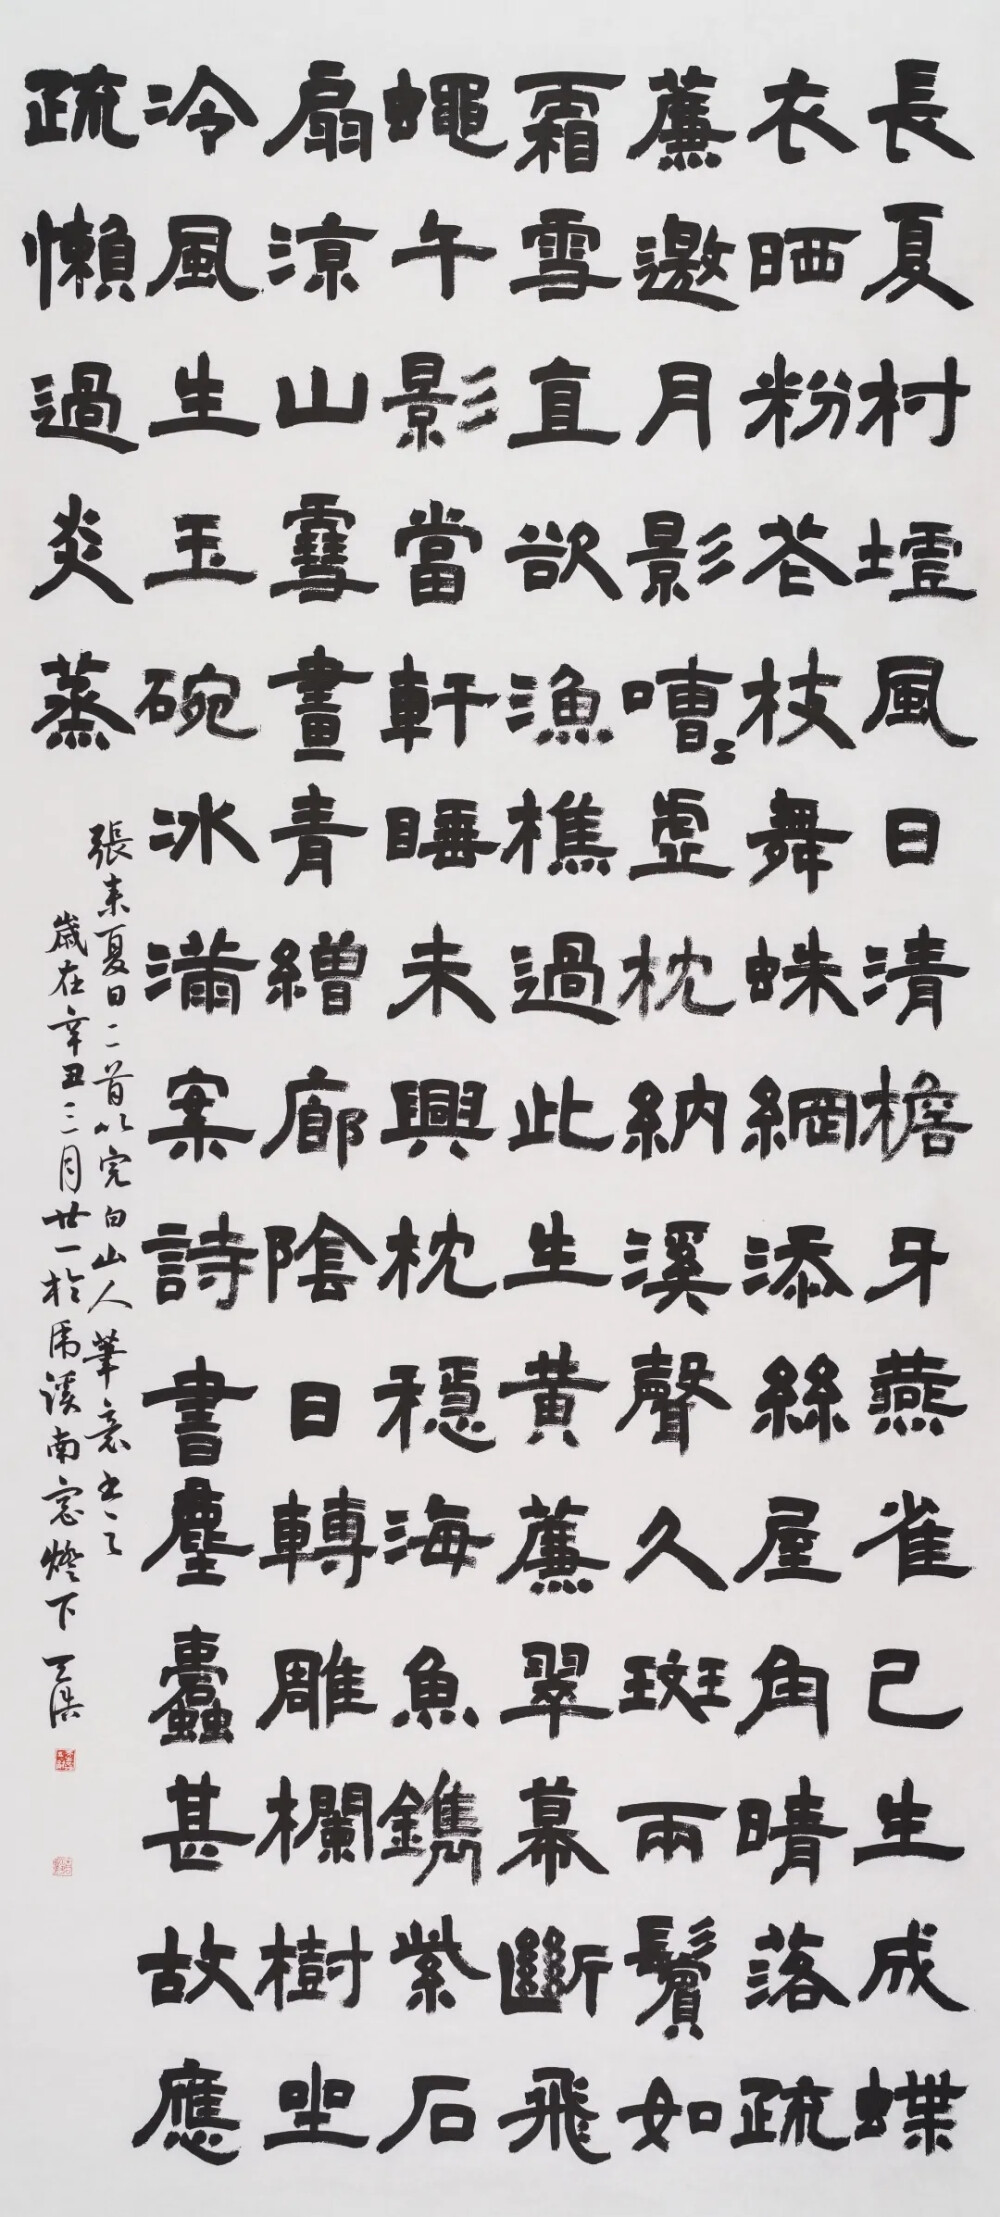 長夏村墟風日清檐牙燕雀已生成蝶
衣晒粉花枝舞蛛網添絲屋角晴落疏
簾邀月影嘈〻虛枕納溪聲久斑兩鬢如
霜雪直欲漁樵過此生黄簾翠幕斷飛
蠅午影當軒睡未興枕穩海魚鐫紫石
扇涼山雪畫青繒廊陰日轉雕欄樹坐
冷風生玉碗冰滿案詩書塵蠹甚故應
疏懶過炎蒸
張耒夏日二首以完白山人筆意書之
歲在辛丑二月廿一於虎溪南窗燈下